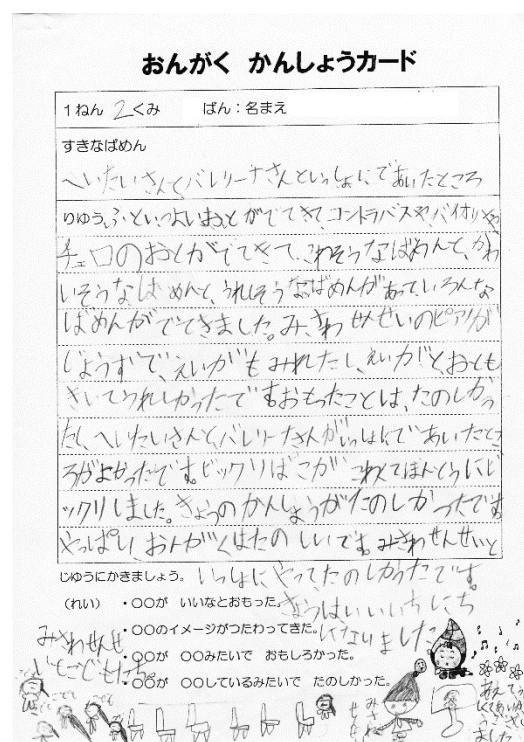 おんがく かんしょうカード
1ねん 2くみ ばん：名まえ
すきなばめん
へいたいさんと、バレリーナさんといっしょにであいたところ
りゆう。ふといつよいおとがでてきて、コントラバスや、バイオリンや、
チェロのおとがでてきて、こわそうなばめんと、かわ
いそうな、ばめんと、うれしそうな、ばめんがあって、いろんな
ばめんがでてきました。みさわせんせいのピアノが
じょうずで、えいがもみれたし、えいがと、おとも
きいてうれしかったですおもったことは、たのしかっ
たし、へいたいさんと、バレリーナさんがいっしょにであいたとこ
ろがよかったです。ビックリばこが こわくてほんとうにビ
ックリしました。きょうのかんしょうがたのしかったです。
やっぱり、おんがくはたのしいです。みさわせんせいと
いっしょにやって、たのしかったです。
きょうはいいいちにち
になりました
じゆうにかきましょう。
（れい） ・○○が いいなとおもった。
・○○のイメージがつたわってきた。
・○○が ○○みたいで おもしろかった。
・○○が ○○しているみたいで たのしかった。
みさわせんせ
いとこどもたち。
みさわ
せんせ
おんが